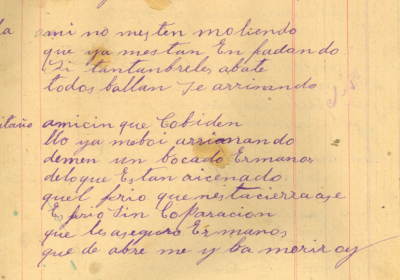 la ami no mesten moliendo
que ya mestan En fadando
Si tantanbreles abate
todos ballan se arrinando
itaño amicinque Cobiden
Uo ya meboi arrinando
demen un bocado Ermanos
deloque Estan aicenado
quel frio que nestacierra ase
Es frio Sin Coparacion
que les aseguro Ermanos
que de abre me y ba morir oy